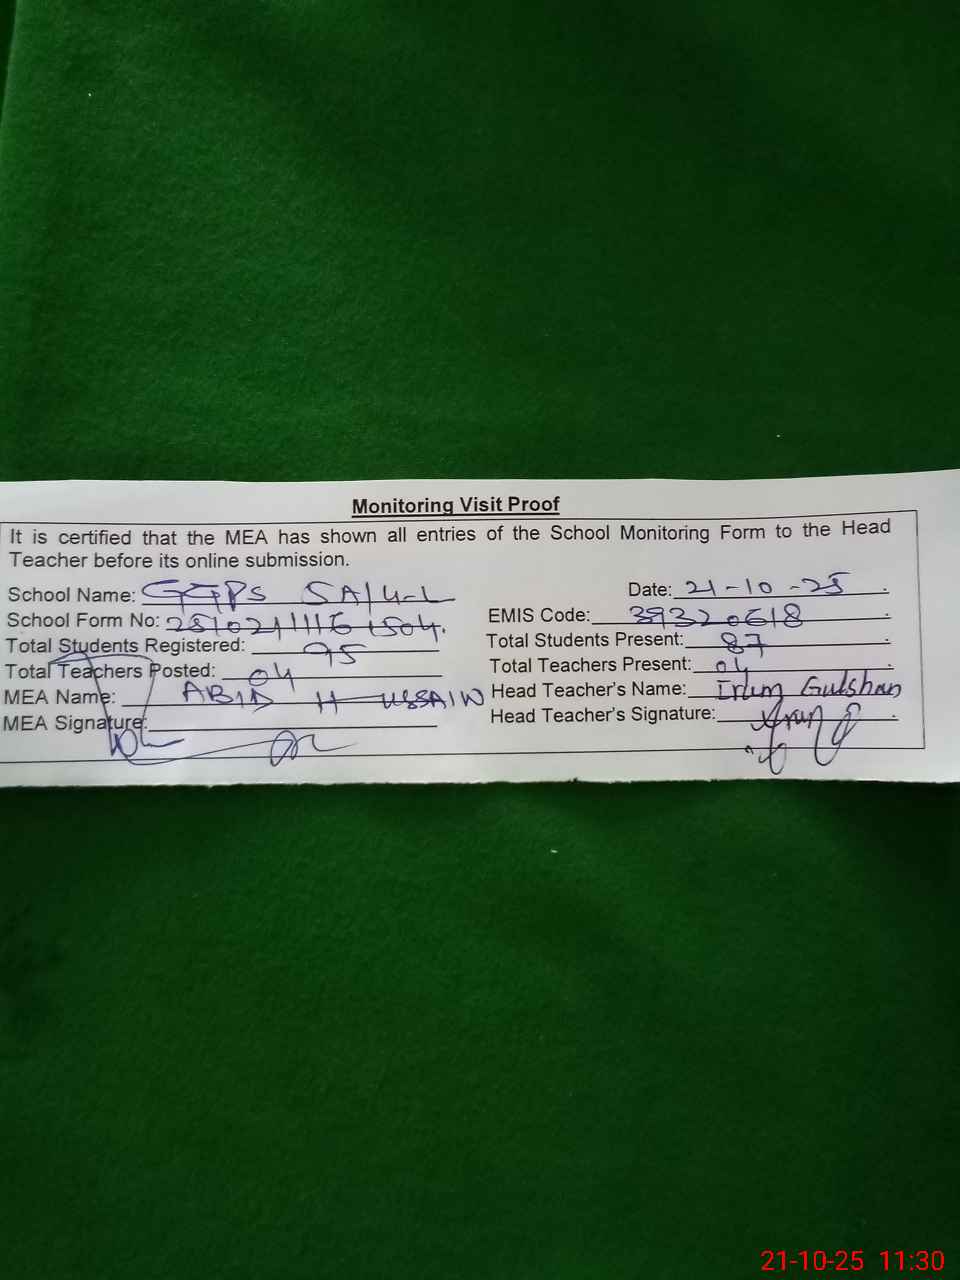 Monitoring Visit Proof
It is certified that the MEA has shown all entries of the School Monitoring Form to the Head
Teacher before its online submission.
School Name: GGPS 5A/4-L Date: 21-10-25
School Form No: 2510211116 1504. EMIS Code: 39320618
Total Students Registered: 95 Total Students Present: 87
Total Teachers Posted: 04 Total Teachers Present: 04
MEA Name: ABID HUSSAIN Head Teacher's Name: Gulshan
MEA Signature: Head Teacher's Signature:
21-10-25 11:30